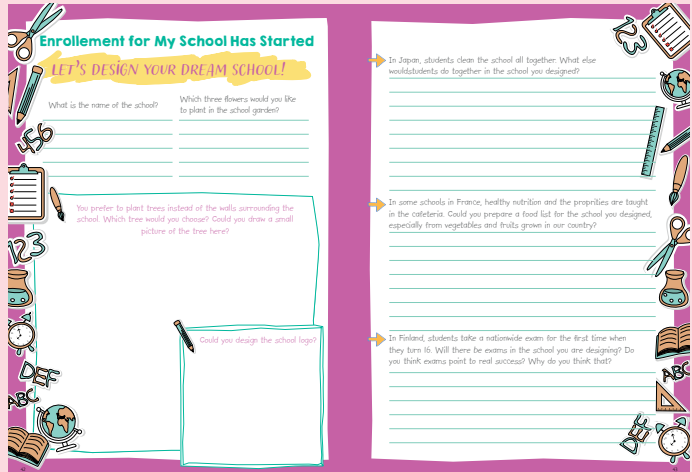 Enrollement for My School Has Started
LET'S DESIGN YOUR DREAM SCHOOL!
What is the name of the school?
Which three flowers would you like
to plant in the school garden?
456
You prefer to plant trees instead of the walls surrounding the
school. Which tree would you choose? Could you draw a small
picture of the tree here?
123
Could you design the school logo?
DEF
ABC
42
123
In Japan, students clean the school all together. What else
wouldstudents do together in the school you designed?
In some schools in France, healthy nutrition and the proprities are taught
in the cafeteria. Could you prepare a food list for the school you designed,
especially from vegetables and fruits grown in our country?
In Finland, students take a nationwide exam for the first time when
they turn 16. Will there be exams in the school you are designing? Do
you think exams point to real success? Why do you think that?
ABC
DEF
43